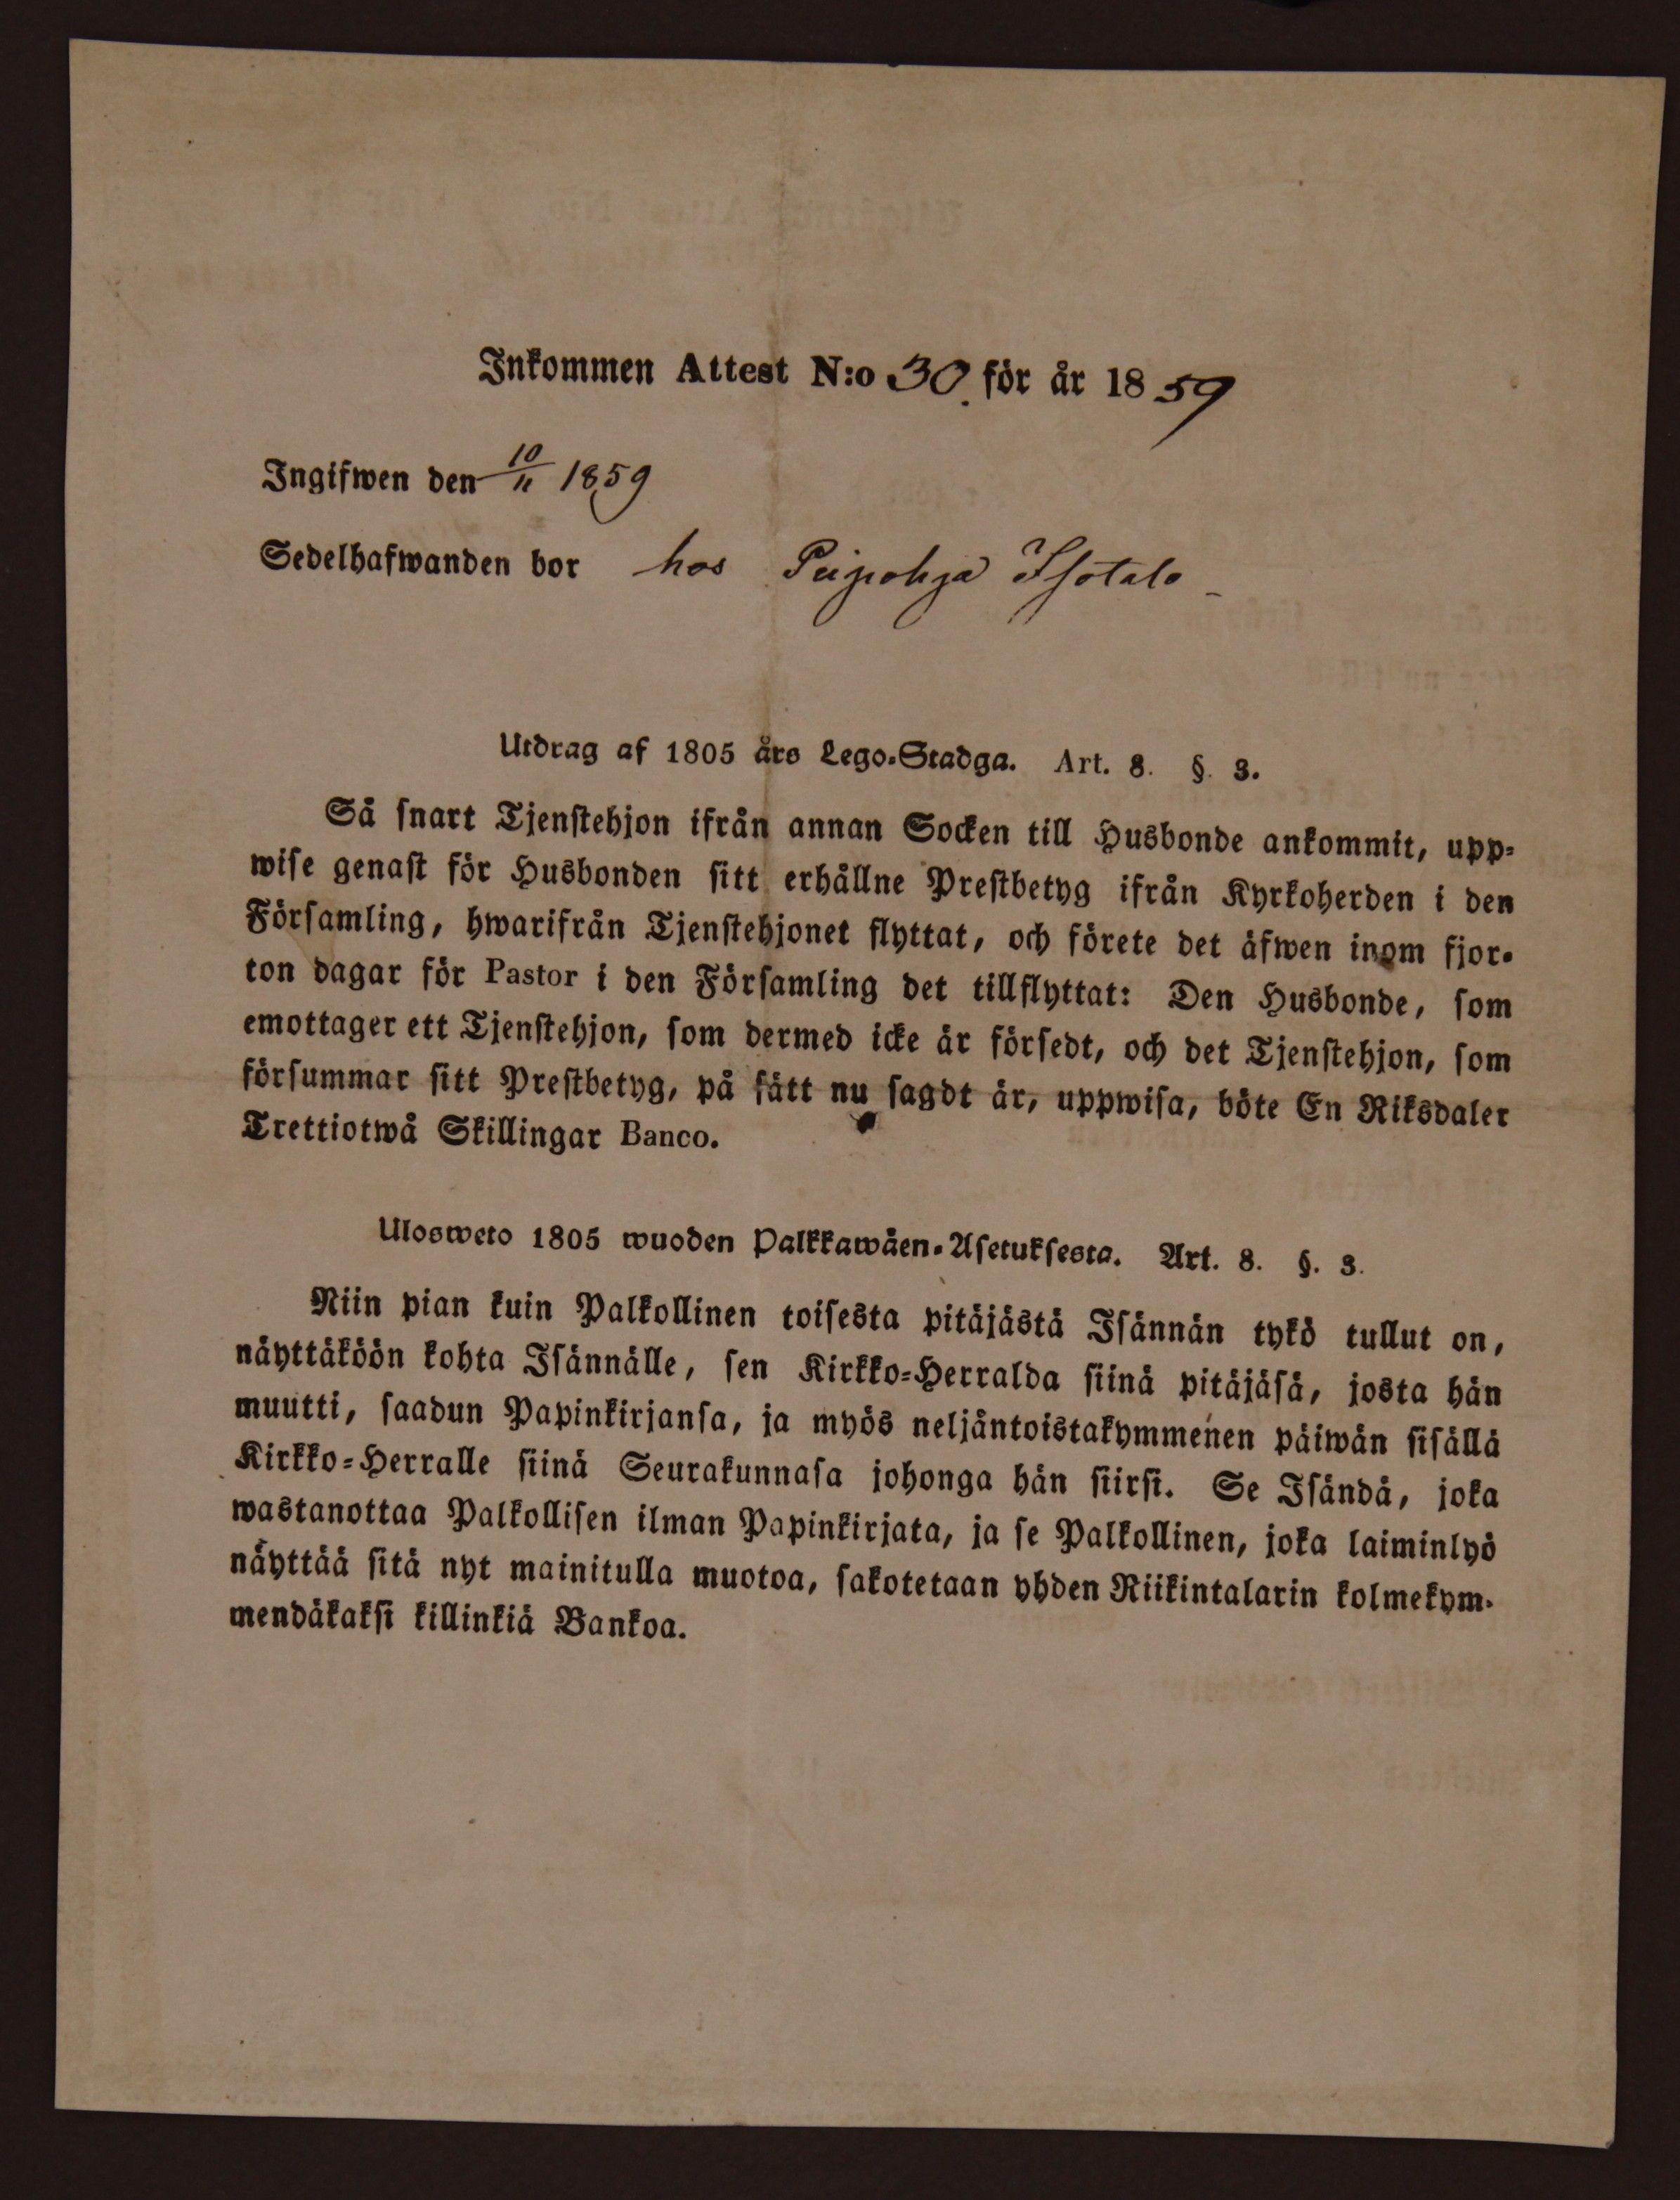 Inkommen Attest N:o 30. för år 1859
Ingifwen den 10/11 1859
Sedelhafwanden bor hos Peipohja Isotalo
Utdrag af 1805 års Lego-Stadga. Art. 8. §. 3.
Så snart Tjenstehjon ifrån annan Socken till Husbonde ankommit, upp-
wise genast för Husbonden sitt erhållne Prestbetyg ifrån Kyrkoherden i den
Församling, hwarifrån Tjenstehjonet flyttat, och förete det äfwen inom fjor-
ton dagar för Pastor i den Församling det tillflyttat: Den Husbonde, som
emottager ett Tjenstehjon, som dermed icke är försedt, och det Tjenstehjon, som
försummar sitt Prestbetyg, på sätt nu sagdt är, uppwisa, böte En Riksdaler
Trettiotwå Skillingar Banco.
Ulosweto 1805 wuoden Palkkawäen-Asetuksesta. Art. 8. §. 3.
Niin pian kuin Palkollinen toisesta pitäjästä Isännän tykö tullut on,
näyttäköön kohta Isännälle, sen Kirkko-Herralda siinä pitäjäsä, josta hän
muutti, saadun Papinkirjansa, ja myös neljäntoistakymmenen päiwän sisällä
Kirkko-Herralle siinä Seurakunnasa johonga hän siirsi. Se Isändä, joka
wastanottaa Palkollisen ilman Papinkirjata, ja se Palkollinen, joka laiminlyö
näyttää sitä nyt mainitulla muotoa, sakotetaan yhden Riikintalarin kolmekym-
mendäkaksi killinkiä Bankoa.